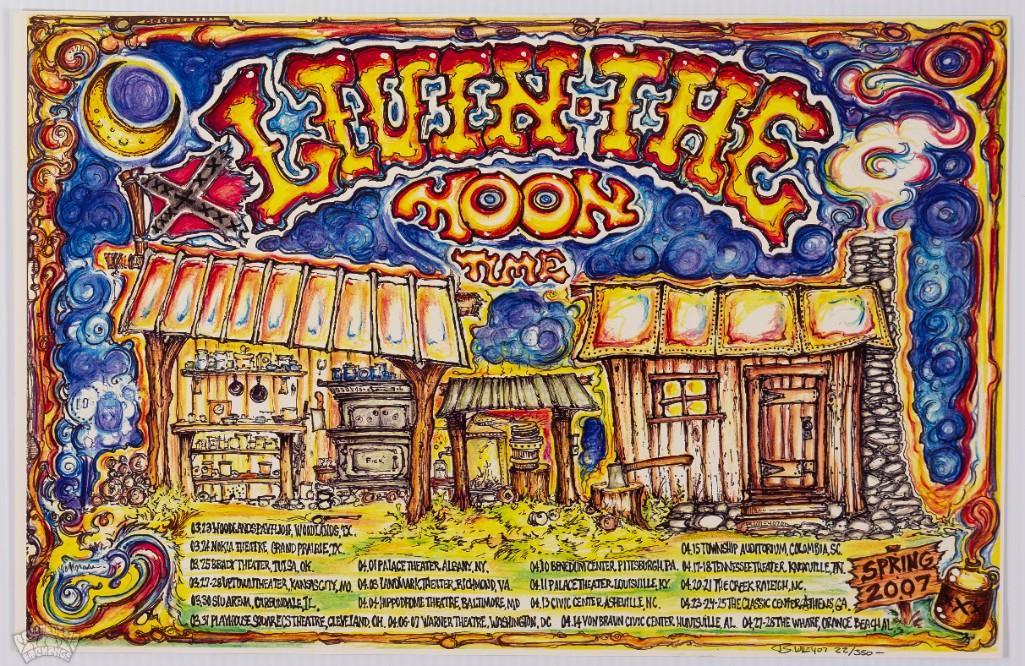 LIVIN·THE
MOON
TIME
FICK
03.23 WOODLANDS PAVILION, WOODLANDS, TX
03.24 NOKIA THEATRE, GRAND PRAIRIE, TX.
03.25 BRADY THEATER, TULSA, OK.
03.27-28 UPTOWN THEATER, KANSAS CITY, MO.
03.30 SIU ARENA, CARBONDALE, IL.
03.31 PLAYHOUSE SQUARE'S THEATRE, CLEVELAND, OH.
04.01 PALACE THEATER, ALBANY, NY.
04.03 LANDMARK THEATER, RICHMOND, VA.
04.04 HIPPODROME THEATRE, BALTIMORE, MD
04.06-07 WARNER THEATRE, WASHINGTON, DC
04.10 BENEDUM CENTER, PITTSBURGH, PA.
04.11 PALACE THEATER, LOUISVILLE, KY.
04.13 CIVIC CENTER, ASHEVILLE, NC.
04.14 VON BRAUN CIVIC CENTER, HUNTSVILLE, AL
04.15 TOWNSHIP AUDITORIUM, COLUMBIA, SC
04.17-18 TENNESSEE THEATER, KNOXVILLE, TN.
04.20-21 THE CREEK, RALEIGH, NC.
04.23-24-25 THE CLASSIC CENTER, ATHENS GA.
04.27-28 THE WHARF, ORANGE BEACH AL.
SPRING
2007
XX
22/350